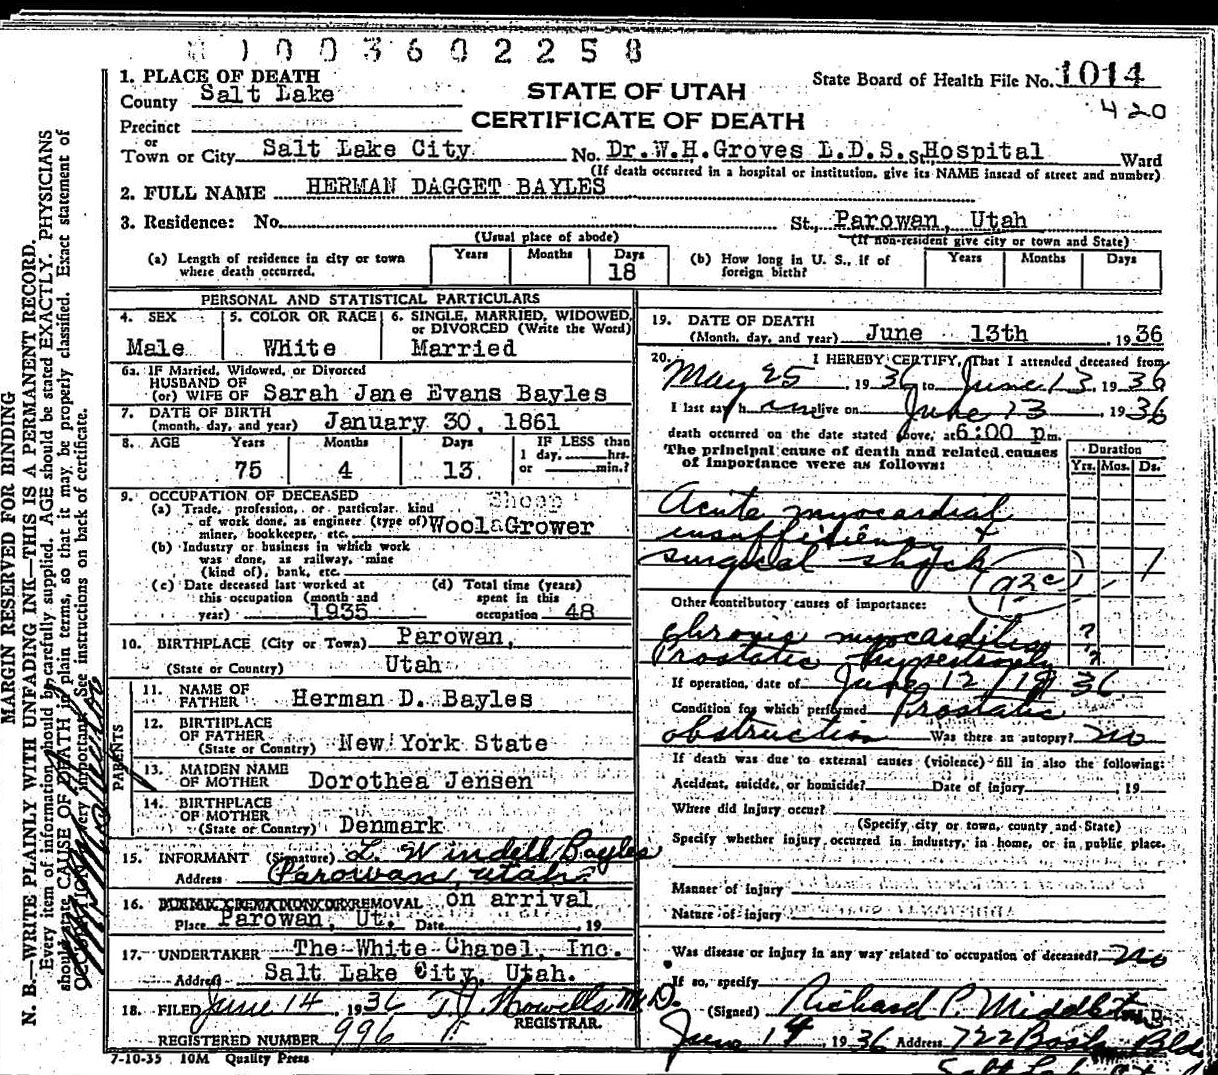 1003602258
1. PLACE OF DEATH
County Salt Lake
STATE OF UTAH
State Board of Health File No. 1014
420
Precinct
CERTIFICATE OF DEATH
or
Town or City Salt Lake City No. Dr. W.H. Groves L.D.S. St. Hospital Ward
(If death occurred in a hospital or institution, give its NAME insead of street and number)
2. FULL NAME HERMAN DAGGET BAYLES
3. Residence: No. St., Parowan, Utah
(Usual place of abode) (If non-resident give city or town and State)
(a) Length of residence in city or town where death occurred. Years Months Days 18
(b) How long in U. S., if of foreign birth? Years Months Days
PERSONAL AND STATISTICAL PARTICULARS
4. SEX Male
5. COLOR OR RACE White
6. SINGLE, MARRIED, WIDOWED, or DIVORCED (Write the Word) Married
6a. IF Married, Widowed, or Divorced
HUSBAND OF
(or) WIFE OF Sarah Jane Evans Bayles
7. DATE OF BIRTH
(month, day, and year) January 30, 1861
8. AGE Years Months Days IF LESS than
1 day, hrs.
75 4 13 or min.?
9. OCCUPATION OF DECEASED
(a) Trade, profession, or particular kind Sheep
of work done, as engineer (type of) Wool Grower
miner, bookkeeper, etc.
(b) Industry or business in which work
was done, as railway, mine
(kind of), bank, etc.
(c) Date deceased last worked at this occupation (month and year) 1935
(d) Total time (years) spent in this occupation 48
10. BIRTHPLACE (City or Town) Parowan,
(State or Country) Utah
PARENTS
11. NAME OF FATHER Herman D. Bayles
12. BIRTHPLACE OF FATHER
(State or Country) New York State
13. MAIDEN NAME OF MOTHER Dorothea Jensen
14. BIRTHPLACE OF MOTHER
(State or Country) Denmark
15. INFORMANT (Signature) L. Windell Bayles
Address Parowan, Utah
16. REMOVAL on arrival
Place Parowan, Ut. Date 19
17. UNDERTAKER The White Chapel, Inc.
Address Salt Lake City, Utah.
18. FILED June 14 1936 T. J. Howells M.D.
REGISTRAR.
REGISTERED NUMBER 996
7-10-35 10M Quality Press
19. DATE OF DEATH
(Month, day, and year) June 13th 1936
20. I HEREBY CERTIFY, That I attended deceased from
May 25, 1936 to June 13, 1936
I last saw him alive on June 13, 1936
death occurred on the date stated above, at 6:00 pm.
The principal cause of death and related causes
of importance were as follows:
Duration
Yrs. Mos. Ds.
Acute myocardial
insufficiency &
surgical shock 1
(92c)
Other contributory causes of importance:
Chronic myocarditis ?
Prostatic hypertrophy ?
If operation, date of June 12 1936
Condition for which performed Prostatic
obstruction Was there an autopsy? no
If death was due to external causes (violence) fill in also the following:
Accident, suicide, or homicide? Date of injury 19
Where did injury occur?
(Specify city or town, county and State)
Specify whether injury occurred in industry, in home, or in public place.
Manner of injury
Nature of injury
Was disease or injury in any way related to occupation of deceased? no
If so, specify
(Signed) Richard P. Middleton
June 14 1936 Address 722 Bldg
Salt Lake City
MARGIN RESERVED FOR BINDING
N. B.—WRITE PLAINLY WITH UNFADING INK—THIS IS A PERMANENT RECORD.
Every item of information should be carefully supplied. AGE should be stated EXACTLY. PHYSICIANS
should state CAUSE OF DEATH in plain terms, so that it may be properly classified. Exact statement of
OCCUPATION is very important. See instructions on back of certificate.